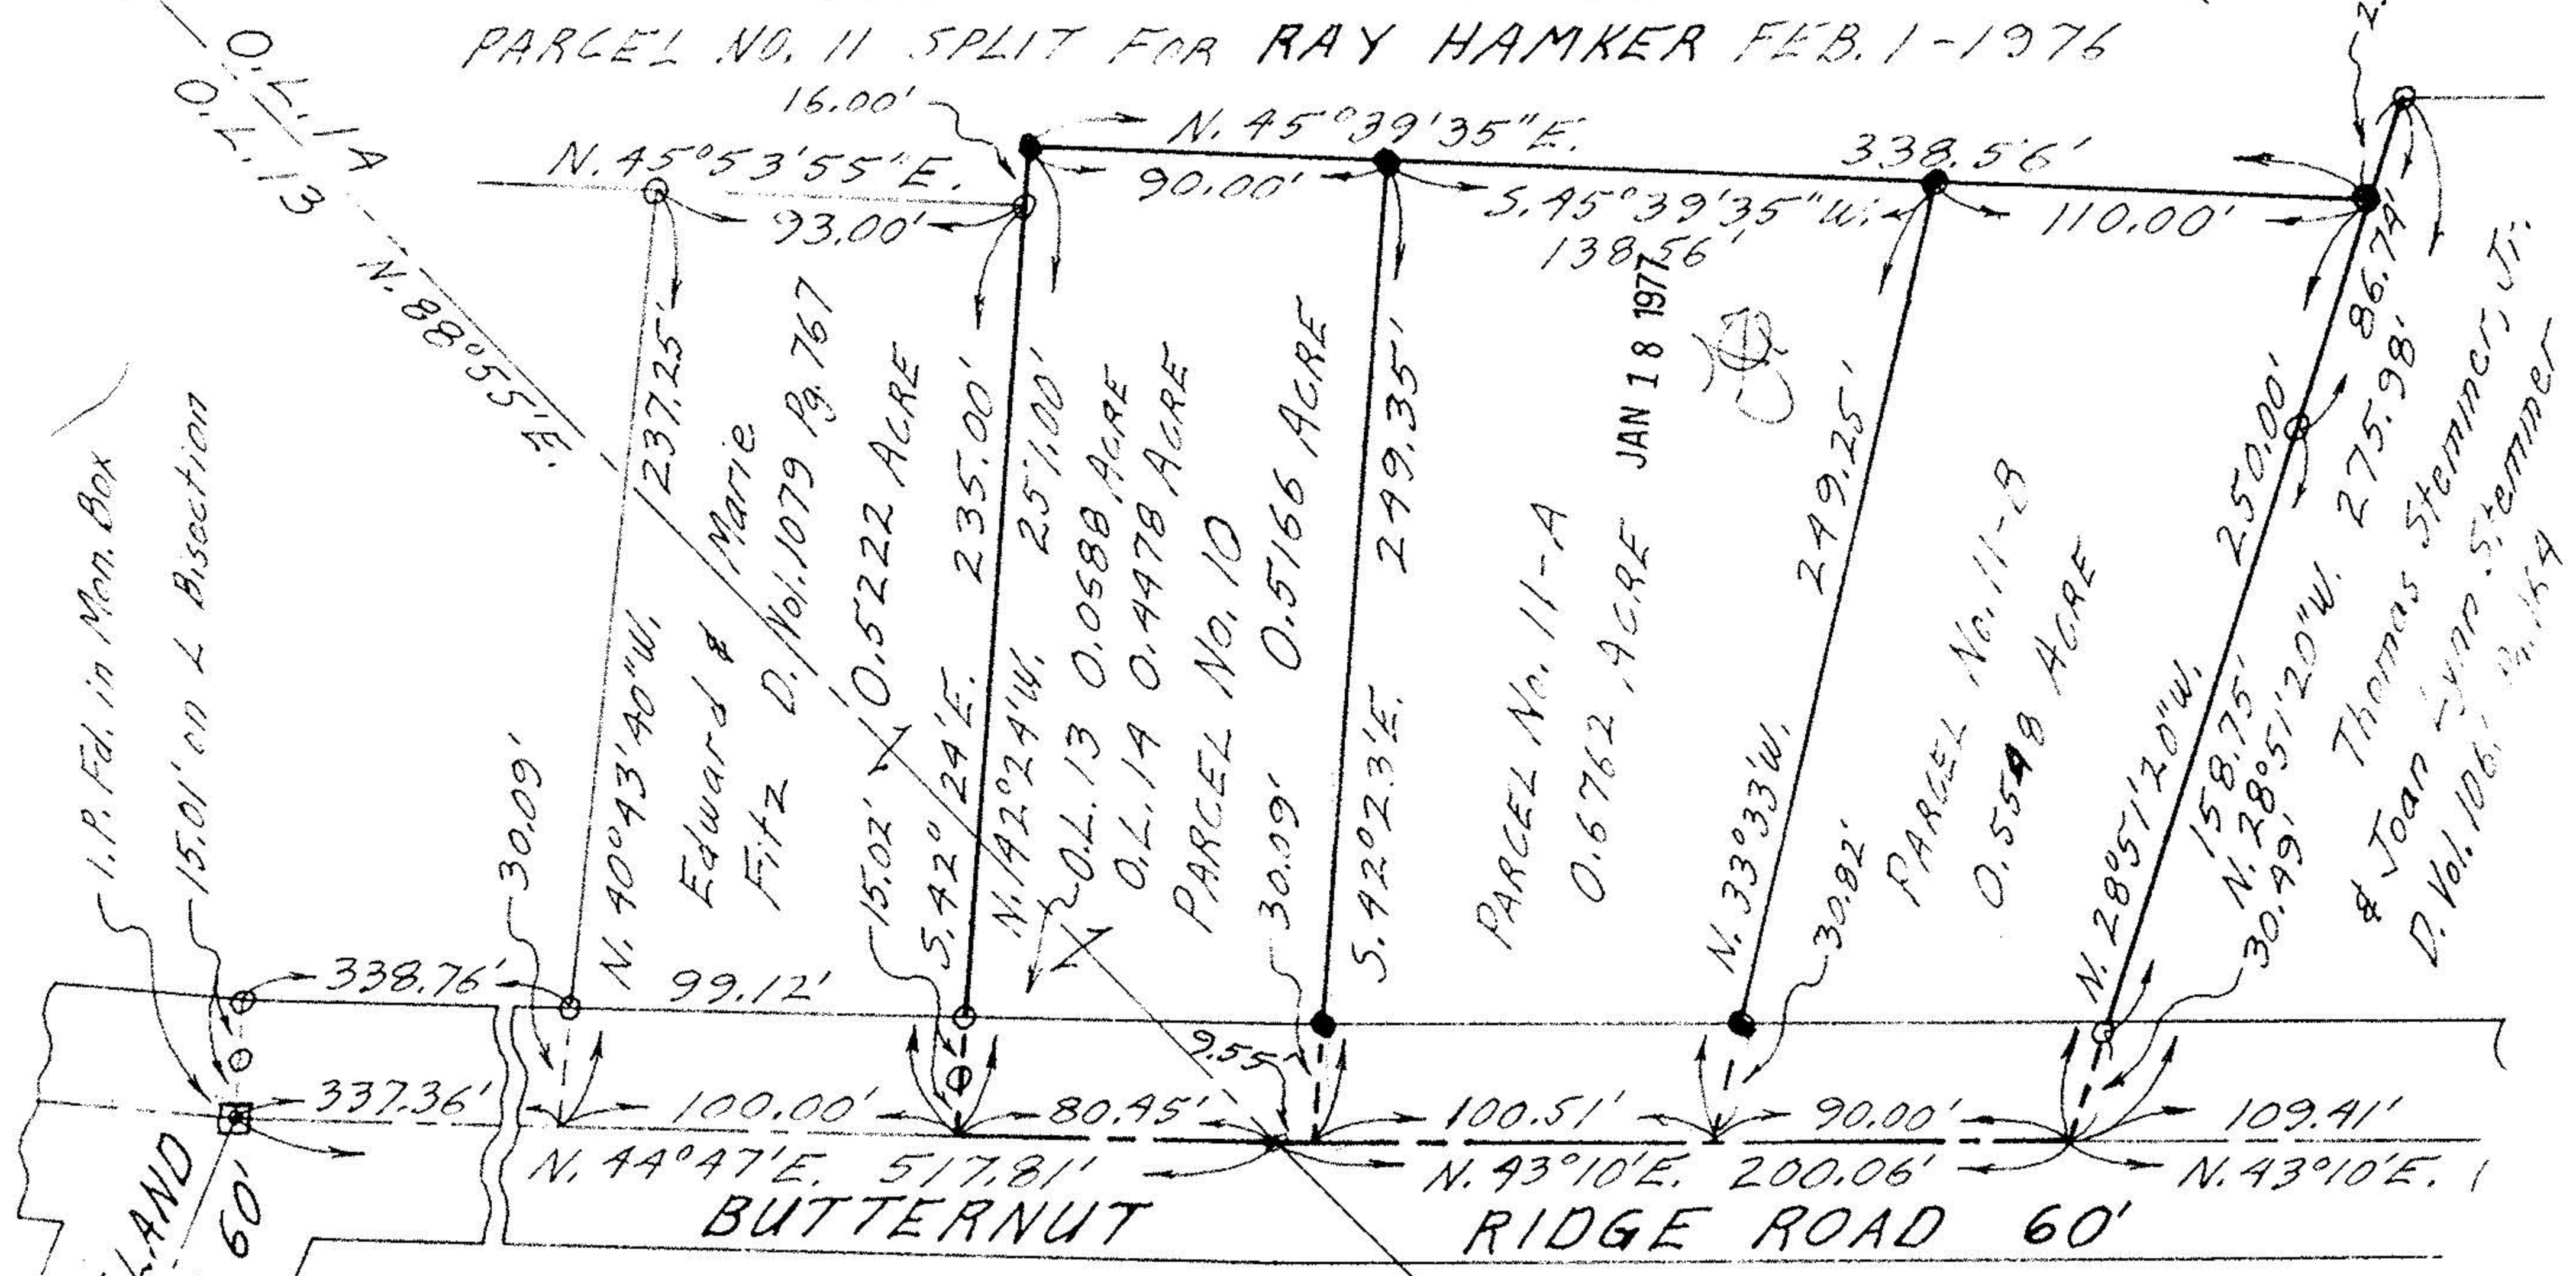 PARCEL NO. 11 SPLIT FOR RAY HAMKER FEB. 1-1976
O.L. 14
O.L. 13
N. 88°55'E.
16.00'
N. 45°39'35"E.
338.56'
N. 45°53'55"E.
93.00'
90.00'
S. 45°39'35"W.
138.56'
110.00'
2.
JAN 18 1977
I.P. Fd. in Mon. Box
15.01' on L Bisection
30.09'
N. 40°43'40"W.
237.25'
Edward & Marie
Fitz D. Vol. 1079 Pg. 767
0.5222 ACRE
15.02'
S. 42°24'E. 235.00'
N. 42°24'W. 251.00'
O.L. 13 0.0688 ACRE
O.L. 14 0.4478 ACRE
PARCEL No. 10
0.5166 ACRE
30.09'
S. 42°23'E. 249.35'
PARCEL No. 11-A
0.6762 ACRE
N. 33°33'W. 249.25'
30.82'
PARCEL No. 11-B
0.5548 ACRE
N. 28°51'20"W. 250.00'
158.75' 86.74'
N. 28°51'20"W. 275.98'
30.49'
Thomas Stemmer, Jr.
& Joan Lynn Stemmer
D. Vol. 106
338.76'
99.12'
9.55'
337.36'
100.00'
80.45'
100.51'
90.00'
109.41'
N. 44°47'E. 517.81'
N. 43°10'E. 200.06'
N. 43°10'E.
BUTTERNUT RIDGE ROAD 60'
LAND
60'